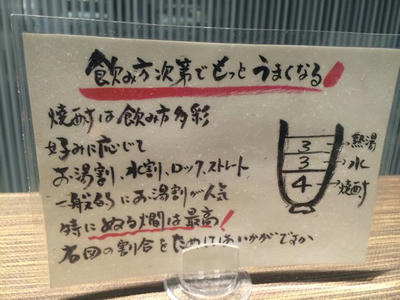 飲み方次第でもっとうまくなる！
焼酎は飲み方多彩
好みに応じて
お湯割、水割、ロック、ストレート
一般的にお湯割が人気
特にぬる燗は最高！
右図の割合をためしてはいかがですか
3 熱湯
3 水
4 焼酎